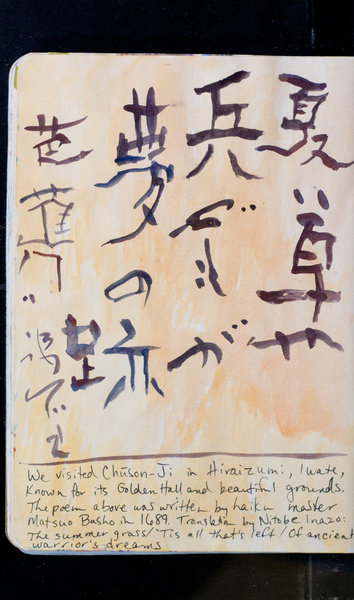 夏草や
兵どもが
夢の跡
芭蕉
We visited Chūson-Ji in Hiraizumi, Iwate,
Known for its Golden Hall and beautiful grounds.
The poem above was written by haiku master
Matsuo Basho in 1689. Translation by Nitobe Inazo:
The summer grass/'Tis all that's left/Of ancient
warrior's dreams